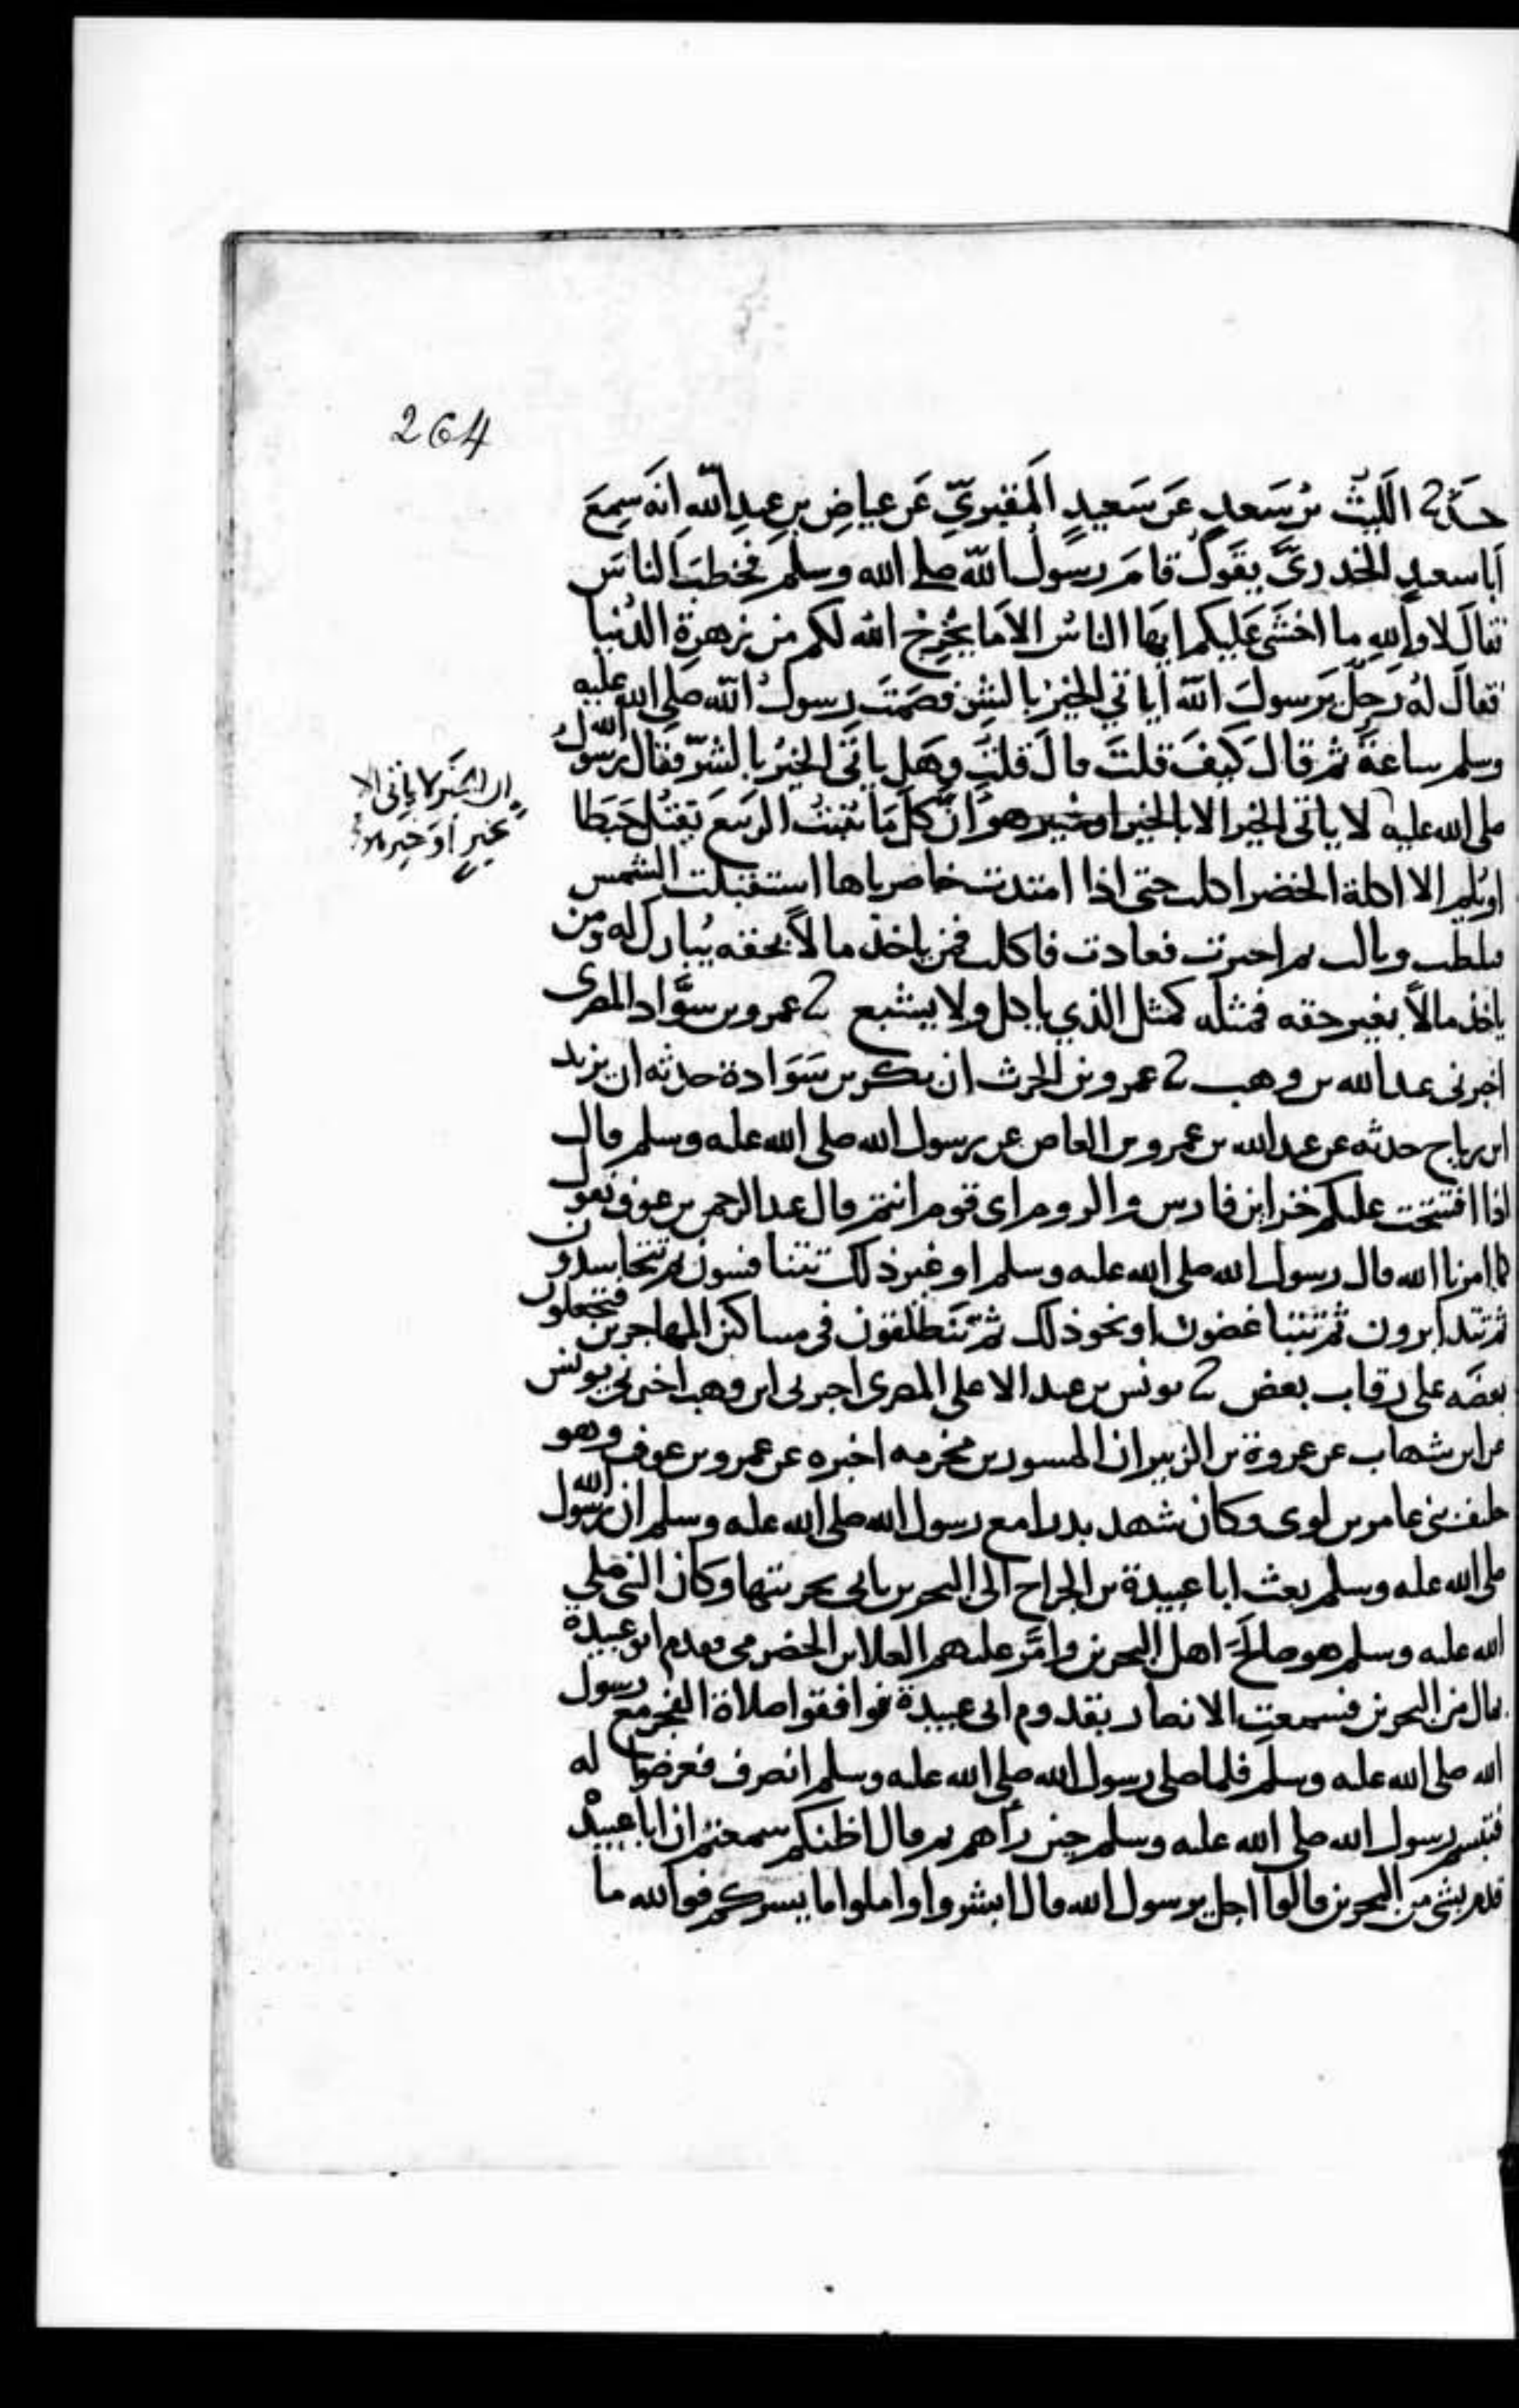 264
حماد 2 الليث بن سعد عن سعيد المقبري عن عياض بن عبد الله انه سمع
ابا سعيد الخدري يقول قام رسول الله صلى الله وسلم فخطب الناس
فقال لا والله ما اخشى عليكم ايها الناس الا ما يخرج الله لكم من زهرة الدنيا
فقال له رجل يرسول الله اياتي الخير بالشر فصمت رسول الله صلى الله عليه
وسلم ساعة ثم قال كيف قلت قال قلت وهل ياتي الخير بالشر فقال رسول الله
صلى الله عليه لا ياتى الخير الا بالخير او خير هو ان كل ما ينبت الربيع يقتل حبطا
ان الخير لا ياتي الا
بخير او خير هو
او يلم الا اكلة الخضر اكلت حتى اذا امتدت خاصرتاها استقبلت الشمس
فثلطت وبالت ثم اجترت فعادت فاكلت فمن ياخذ مالا بحقه يبارك له ومن
ياخذ مالا بغير حقه فمثله كمثل الذي ياكل ولا يشبع 2 عمرو بن سواد المصرى
اخبرنى عبد الله بن وهب 2 عمرو بن الحرث ان بكر بن سوادة حدثه ان يزيد
ابن رباح حدثه عن عبد الله بن عمرو بن العاص عن رسول الله صلى الله عليه وسلم قال
اذا افتتحت عليكم خزاين فارس والروم اى قوم انتم قال عبد الرحمن بن عوف نقول
كما امرنا الله قال رسول الله صلى الله عليه وسلم او غير ذلك تتنافسون ثم تتحاسدون
ثم تتدابرون ثم تتباغضون او نحو ذلك ثم تنطلقون في مساكن المهاجرين فتجعلون
بعضه على رقاب بعض 2 يونس بن عبد الاعلى المصرى اخبرني ابن وهب اخبرني يونس
عن ابن شهاب عن عروة بن الزبير ان المسور بن مخرمه اخبره عن عمرو بن عوف وهو
حليف بني عامر بن لوى وكان شهد بدرا مع رسول الله صلى الله عليه وسلم ان رسول الله
صلى الله عليه وسلم بعث ابا عبيدة بن الجراح الى البحرين ياتي بجزيتها وكان النبي صلى
الله عليه وسلم هو صالح اهل البحرين وامر عليهم العلا بن الحضرمي فقدم ابو عبيدة
بمال من البحرين فسمعت الانصار بقدوم ابى عبيدة فوافقوا صلاة الفجر مع رسول
الله صلى الله عليه وسلم فلما صلى رسول الله صلى الله عليه وسلم انصرف فعرضوا له
فتبسم رسول الله صلى الله عليه وسلم حين رأهم ثم قال اظنكم سمعتم ان ابا عبيدة
قدم بشي من البحرين قالوا اجل يرسول الله قال ابشروا واملوا ما يسركم فوالله ما